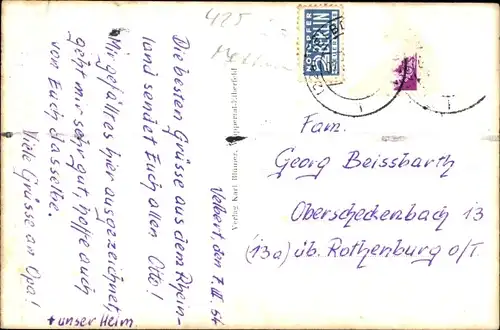 425
Velbert, den 7. III. 54
Die besten Grüsse aus dem Rhein-
land sendet Euch allen Otto!
Mir gefällt es hier ausgezeichnet,
geht mir sehr gut, hoffe auch
von Euch dasselbe.
Viele Grüsse an Opa!
+ unser Heim
Verlag Karl Blauer, Wuppertal-Elberfeld
NOTOPFER
2 BERLIN
STEUERMARKE
Fam.
Georg Beissbarth
Oberscheckenbach 13
(13a) üb. Rothenburg o/T.